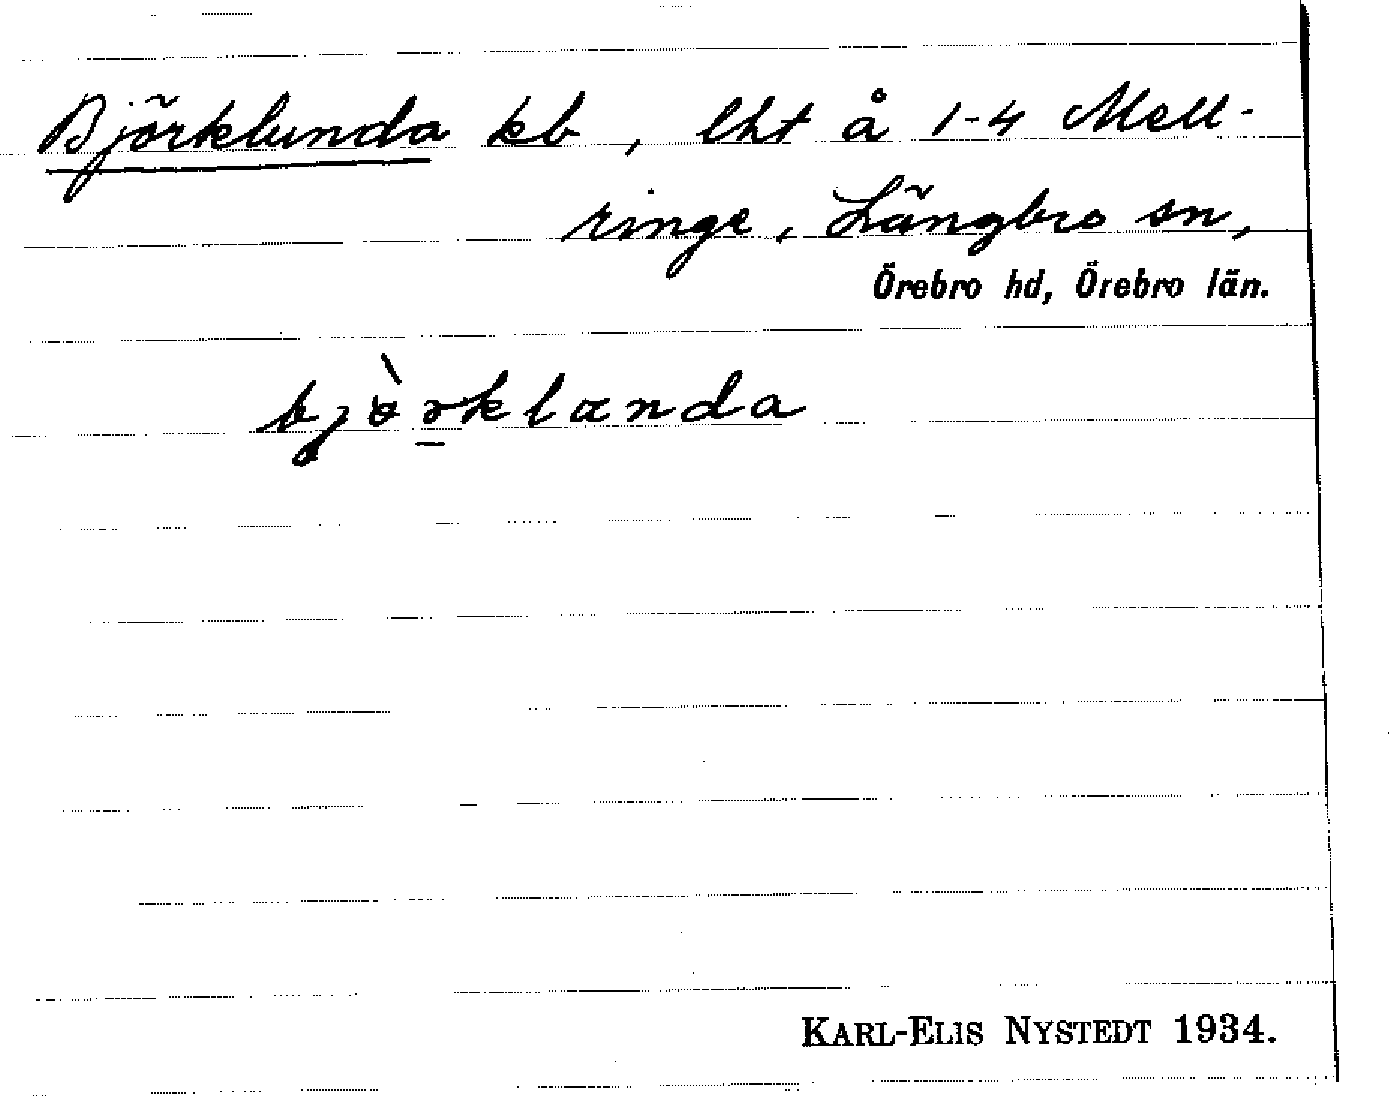 Björklunda kb, lht å 1-4 Mell-
ringe, Längbro sn,
Örebro hd, Örebro län.
bjòrklanda
KARL-ELIS NYSTEDT 1934.